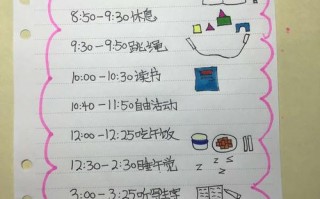 8:50-9:30休息
9:30-9:50跳绳
10:00-10:30读书
10:40-11:50自由活动
12:00-12:25吃午饭
12:30-2:30睡午觉
z z z z
3:00-3:25听写生字